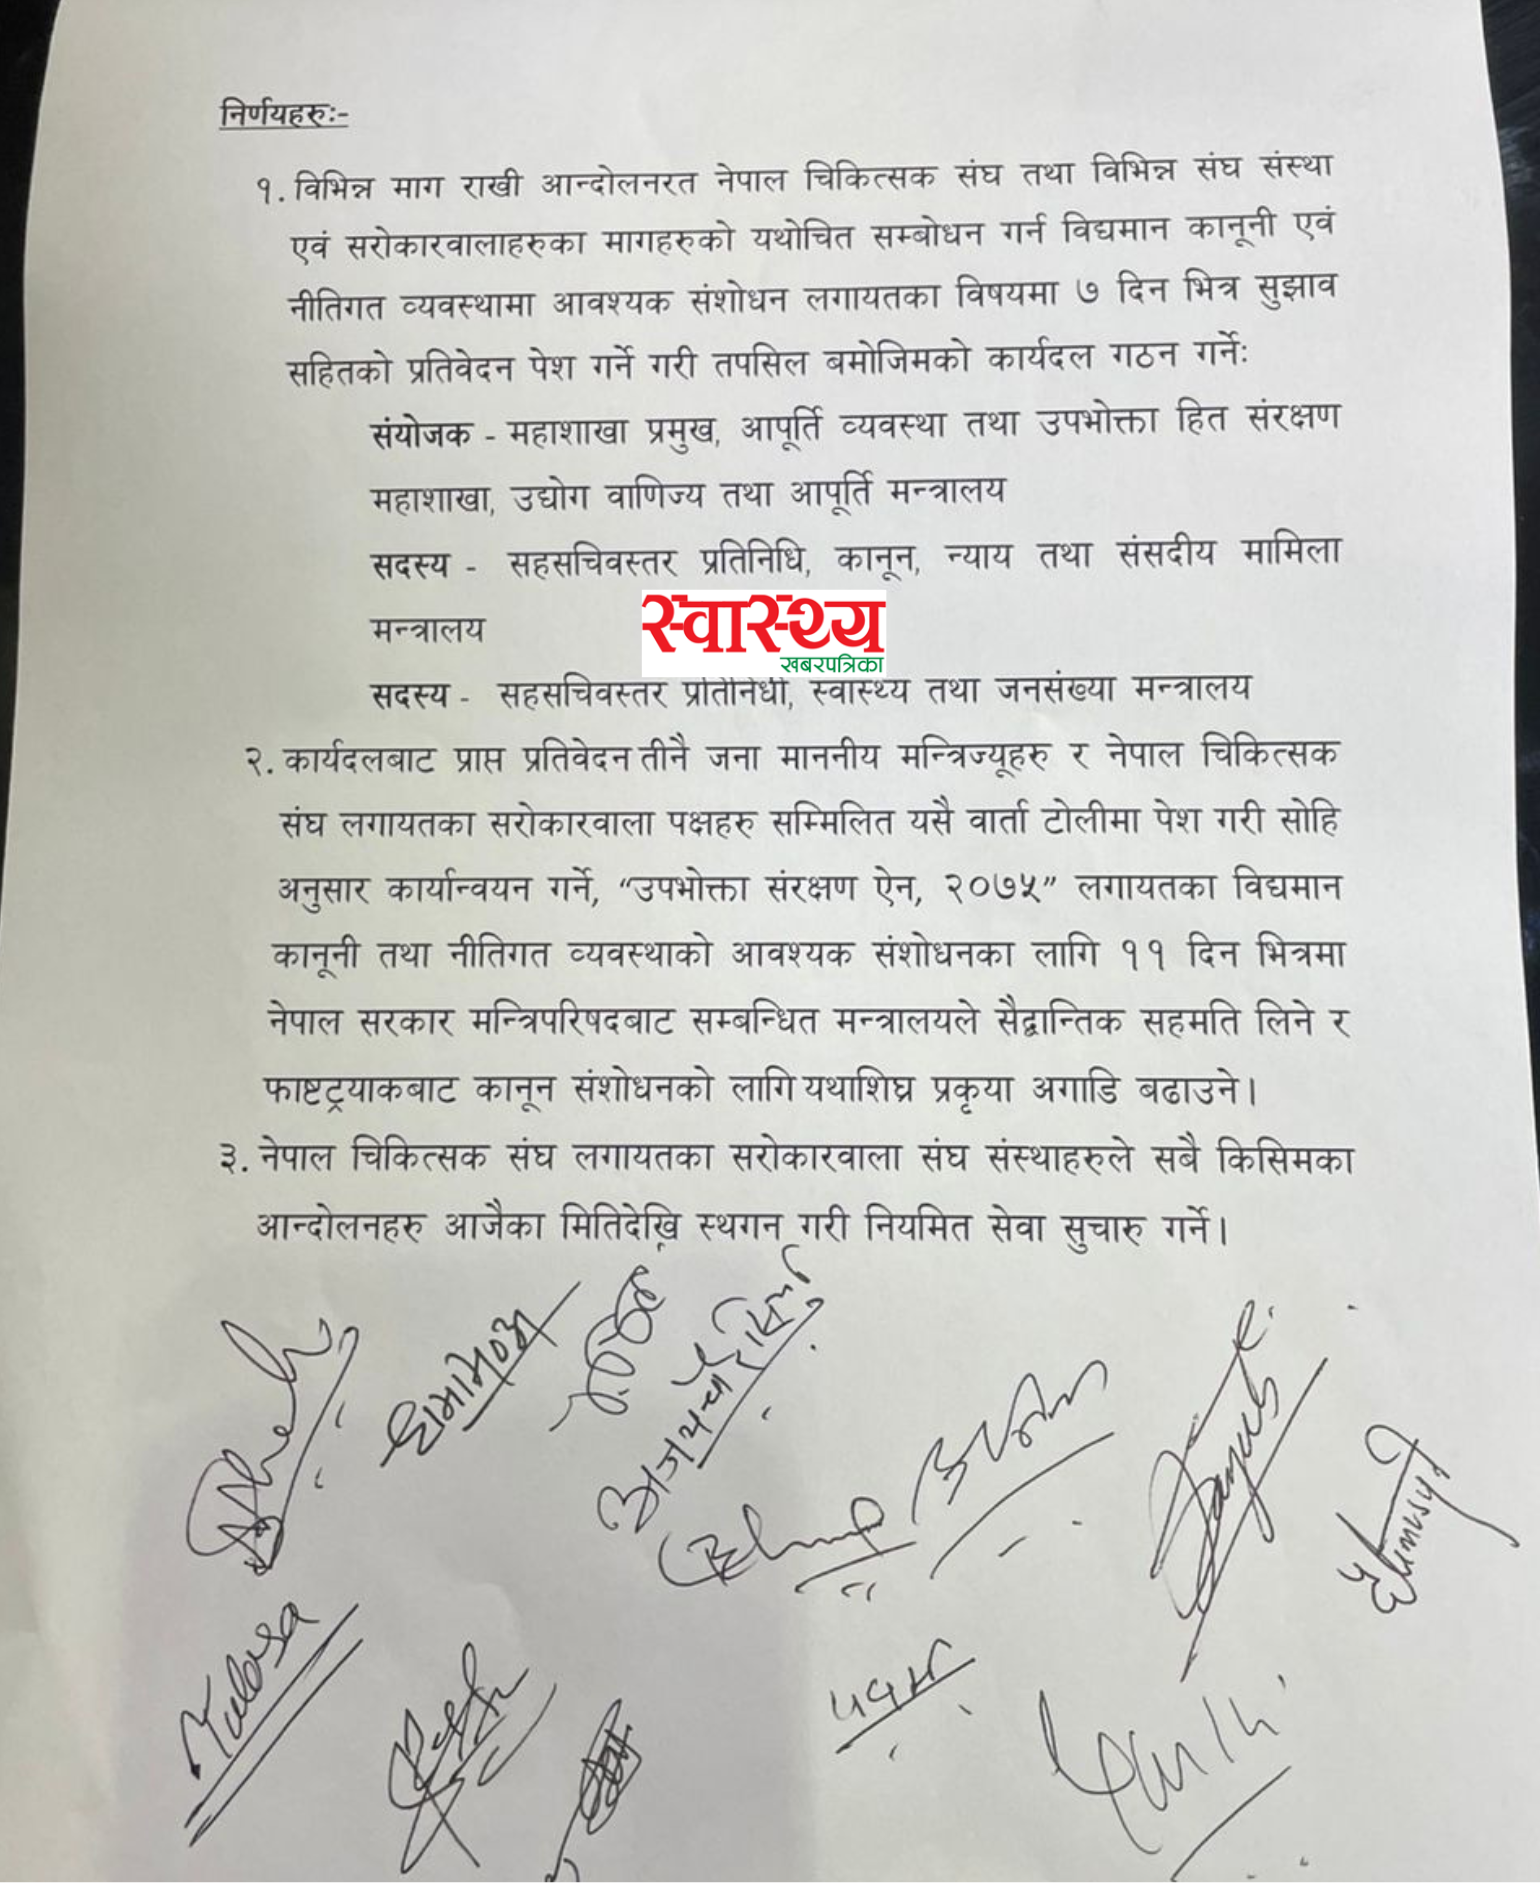 निर्णयहरुः-
१. विभिन्न माग राखी आन्दोलनरत नेपाल चिकित्सक संघ तथा विभिन्न संघ संस्था
एवं सरोकारवालाहरुका मागहरुको यथोचित सम्बोधन गर्न विद्यमान कानूनी एवं
नीतिगत व्यवस्थामा आवश्यक संशोधन लगायतका विषयमा ७ दिन भित्र सुझाव
सहितको प्रतिवेदन पेश गर्ने गरी तपसिल बमोजिमको कार्यदल गठन गर्नेः
संयोजक - महाशाखा प्रमुख, आपूर्ति व्यवस्था तथा उपभोक्ता हित संरक्षण
महाशाखा, उद्योग वाणिज्य तथा आपूर्ति मन्त्रालय
सदस्य - सहसचिवस्तर प्रतिनिधि, कानून, न्याय तथा संसदीय मामिला
मन्त्रालय
स्वास्थ्य
खबरपत्रिका
सदस्य - सहसचिवस्तर प्रतिनिधी, स्वास्थ्य तथा जनसंख्या मन्त्रालय
२. कार्यदलबाट प्राप्त प्रतिवेदन तीनै जना माननीय मन्त्रिज्यूहरु र नेपाल चिकित्सक
संघ लगायतका सरोकारवाला पक्षहरु सम्मिलित यसै वार्ता टोलीमा पेश गरी सोहि
अनुसार कार्यान्वयन गर्ने, “उपभोक्ता संरक्षण ऐन, २०७५” लगायतका विद्यमान
कानूनी तथा नीतिगत व्यवस्थाको आवश्यक संशोधनका लागि ११ दिन भित्रमा
नेपाल सरकार मन्त्रिपरिषदबाट सम्बन्धित मन्त्रालयले सैद्वान्तिक सहमति लिने र
फाष्टट्रयाकबाट कानून संशोधनको लागि यथाशिघ्र प्रकृया अगाडि बढाउने।
३. नेपाल चिकित्सक संघ लगायतका सरोकारवाला संघ संस्थाहरुले सबै किसिमका
आन्दोलनहरु आजैका मितिदेखि स्थगन गरी नियमित सेवा सुचारु गर्ने।